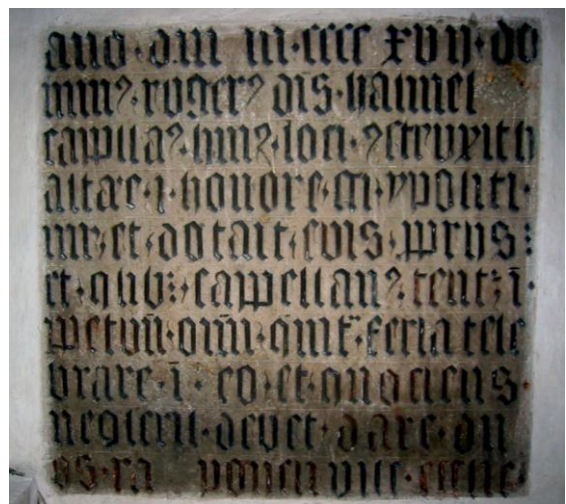 ano · dni · m · cccc xvii · do
minꝰ · rogerꝰ dis · hammel
cappllaꝰ · huiꝰ · loci · ꝯstruxit h
altare · i · honore · sti · ypoliti ·
mr · et · dotait · suis · prns :
et · qlib : cappellanꝰ · tent : ī ·
ppetuū · omī · quīt · feria cele
brare · ī · eo · et · quociens ·
neglexit · devet · dare · du
os